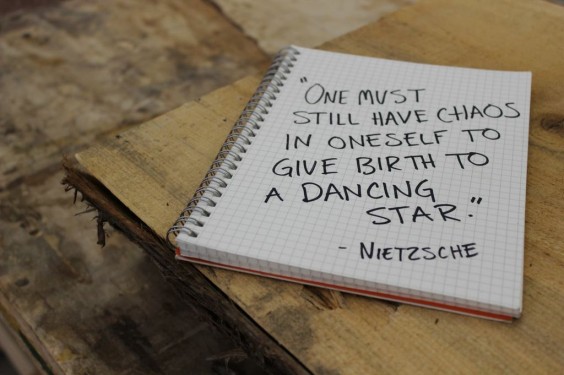 "ONE MUST
STILL HAVE CHAOS
IN ONESELF TO
GIVE BIRTH TO
A DANCING
STAR."
- NIETZSCHE